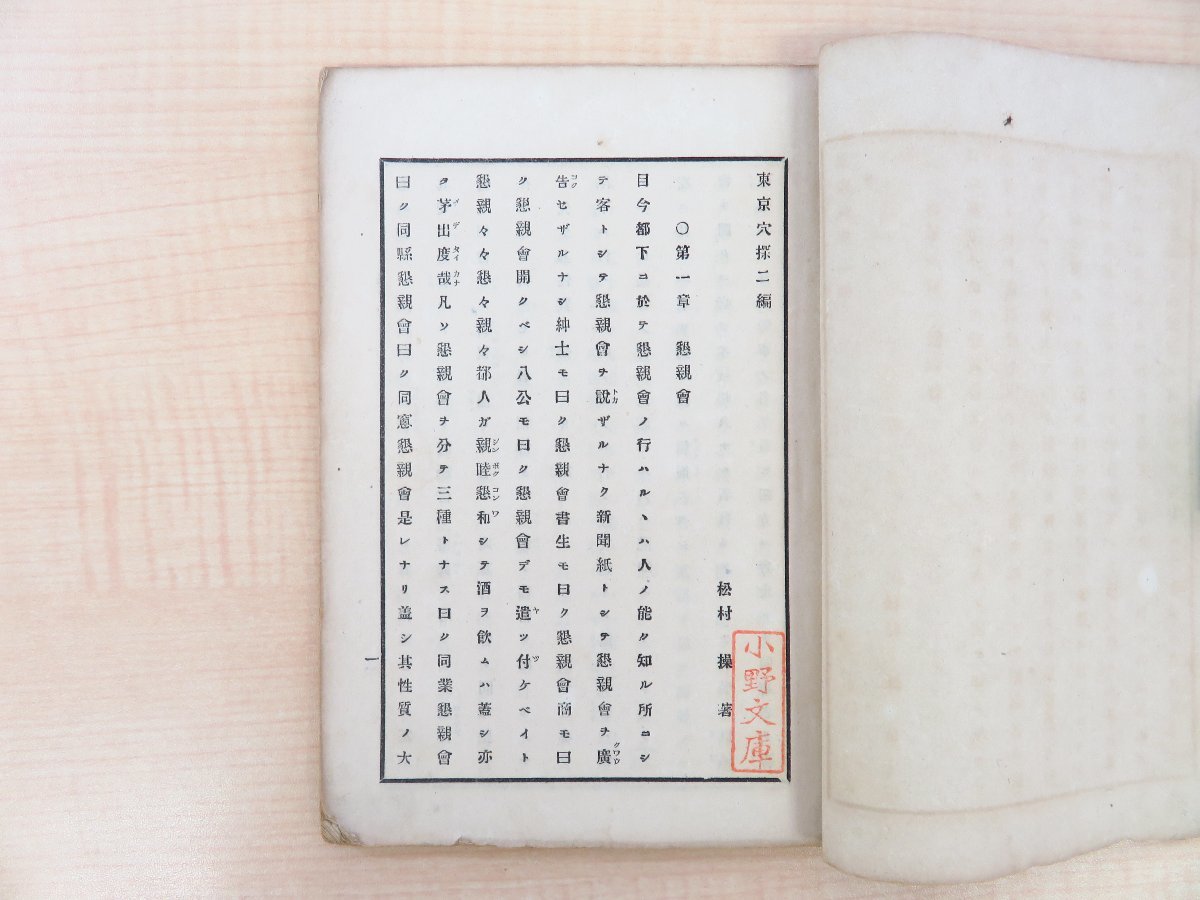 東京穴探二編
松村操著
小野文庫
〇第一章 懇親會
目今都下ニ於テ懇親會ノ行ハルヽハ人ノ能ク知ル所ニシ
テ客トシテ懇親會ヲ說ザルナク新聞紙トシテ懇親會ヲ廣
告セザルナシ紳士モ曰ク懇親會書生モ曰ク懇親會商モ曰
ク懇親會開クベシ八公モ曰ク懇親會デモ遣ツ付ケベイト
懇親々々懇々親々都人ガ親睦懇和シテ酒ヲ飮ムハ蓋シ亦
タ芽出度哉凡ソ懇親會ヲ分テ三種トナス曰ク同業懇親會
曰ク同縣懇親會曰ク同窓懇親會是レナリ盖シ其性質ノ大
一